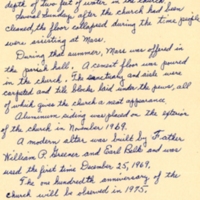 depth of two feet of water in the church.
Several Sunday, after the church had been
cleaned, the floor collapsed during the time people
were assisting at Mass.
During that summer, Mass was offered in
the parish hall. A cement floor was poured
in the church. The sanctuary and aisle were
carpeted and tile blocks laid under the pews, all
of which gives the church a neat appearance.
Aluminum siding was placed on the exterior
of the church in November 1969.
A modern altar was built by Father
William P. Greener and Earl and was
used the first time December 25, 1969.
The one hundredth anniversary of the
church will be observed in 1975.